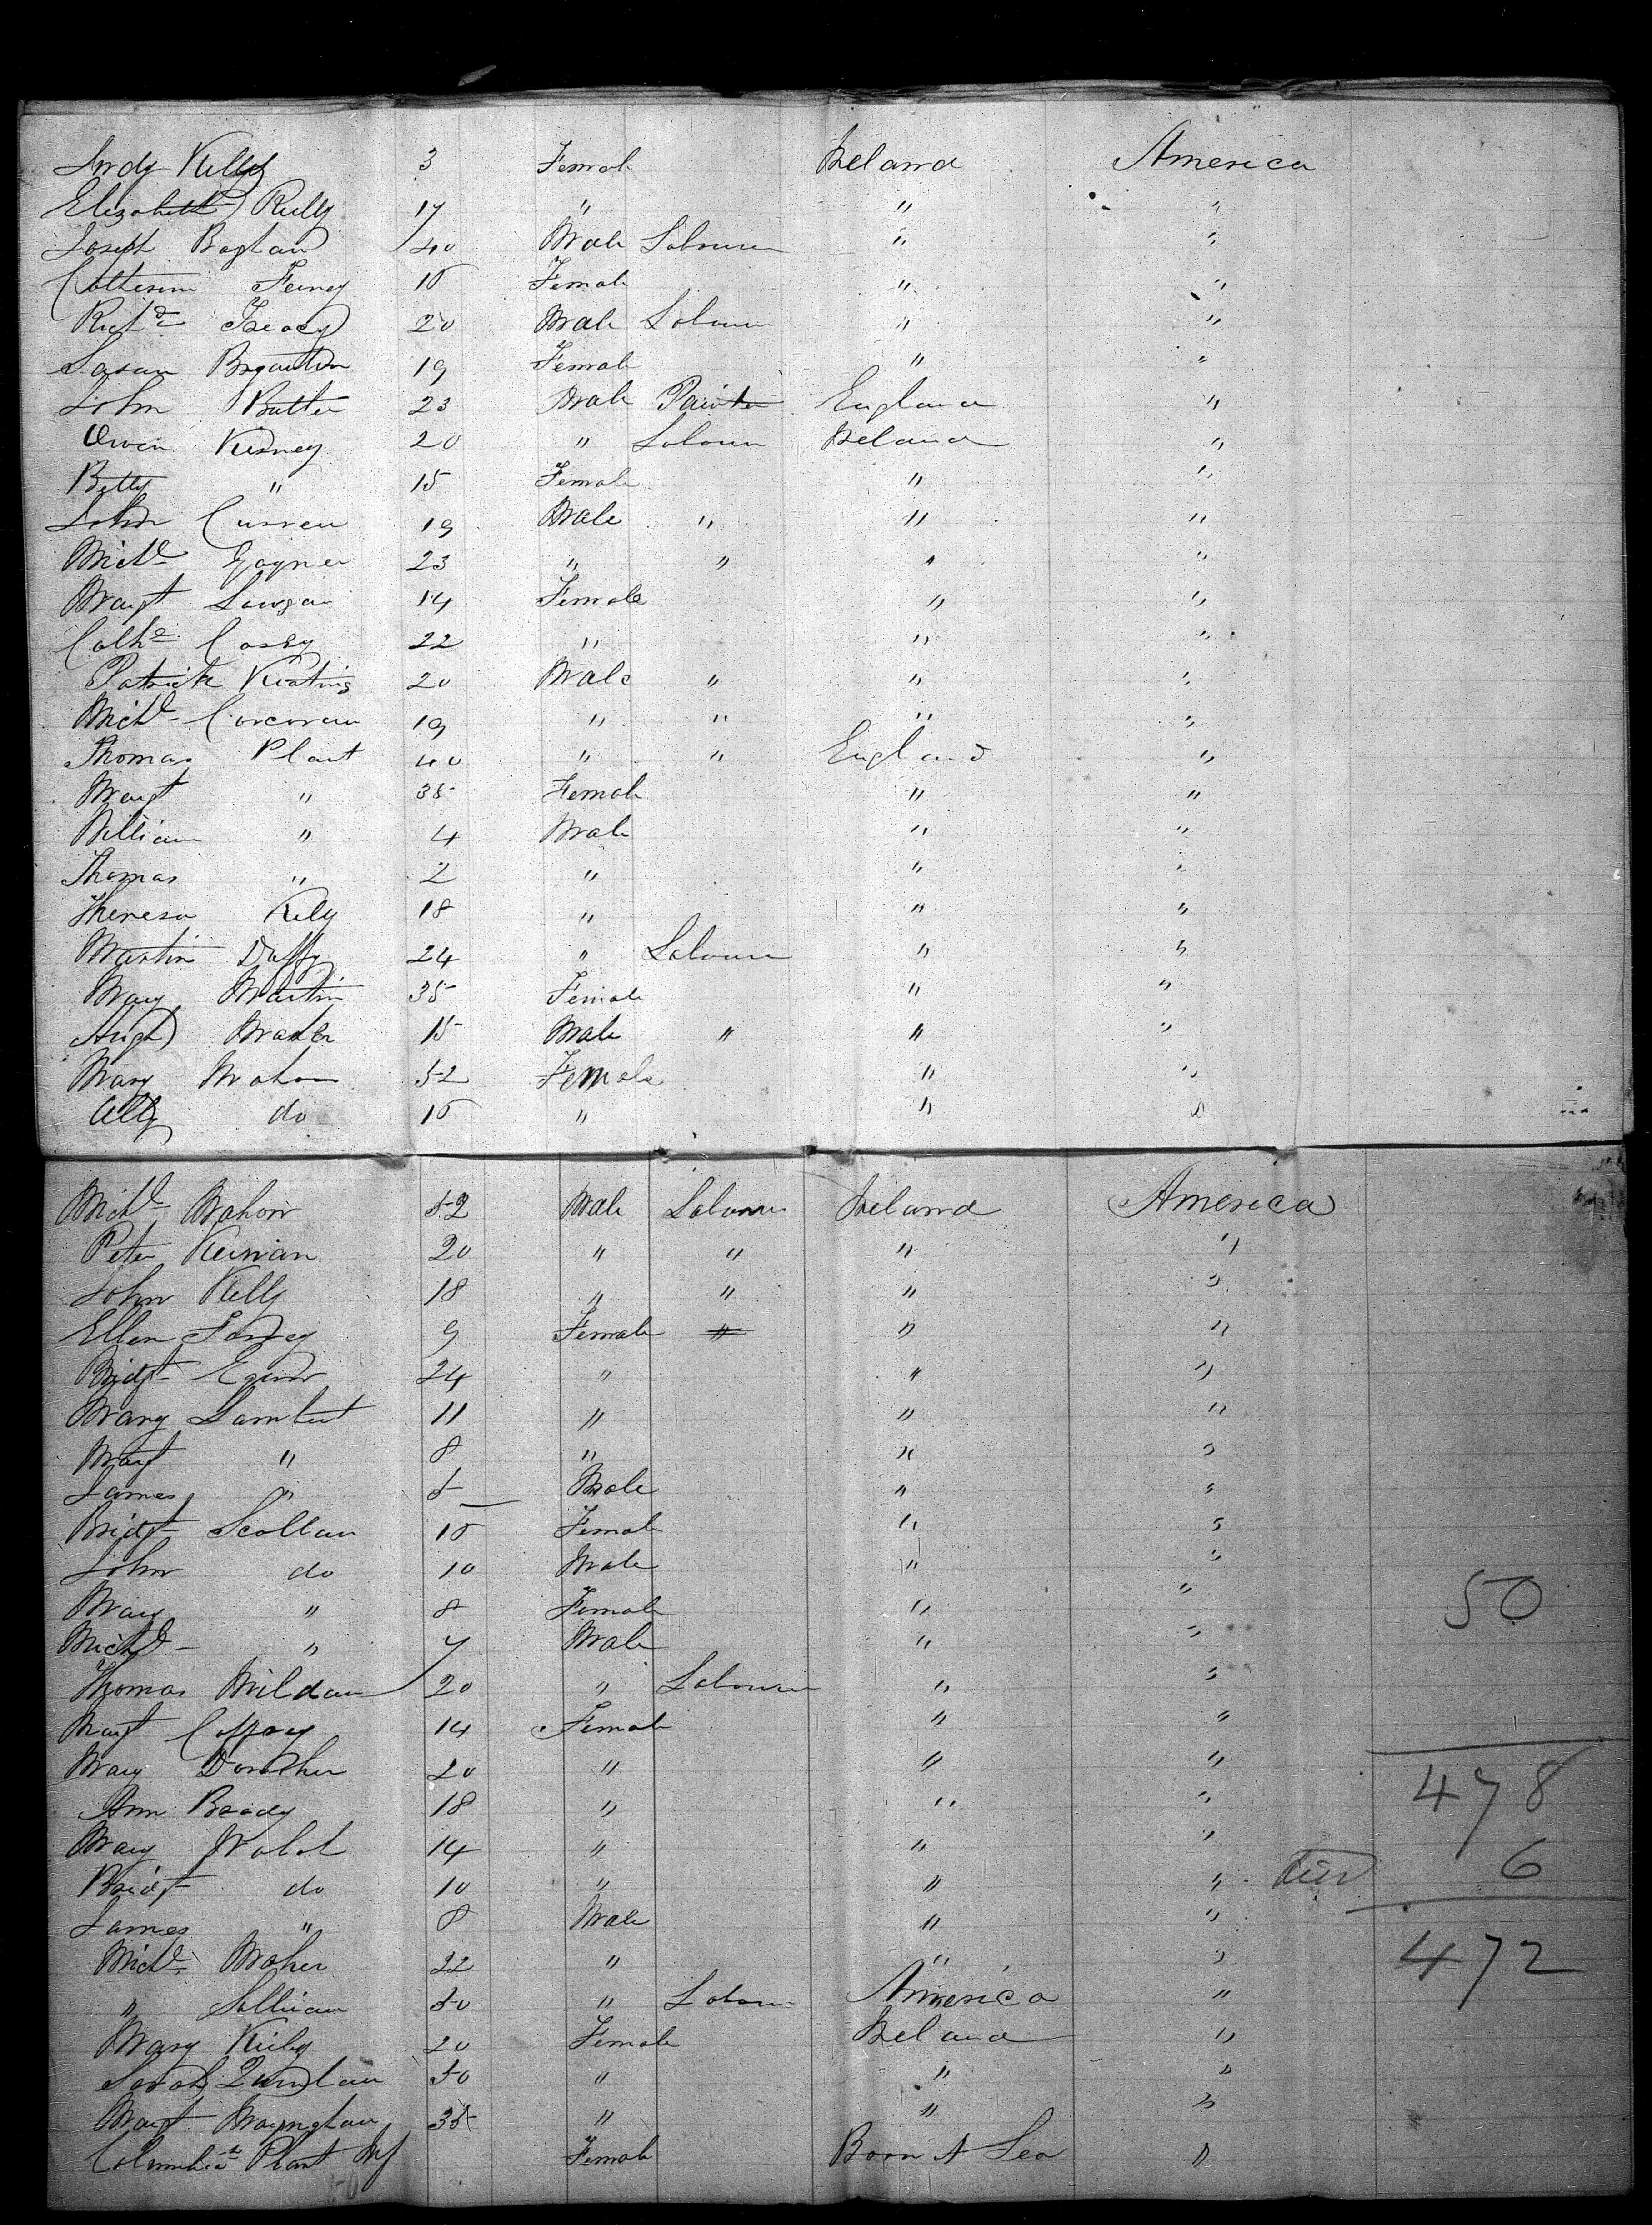 Andy Kelly 3 Female Ireland America
Elizabeth Reilly 17 " " "
Joseph 40 Male Labourer " "
Catherine Feeney 15 Female " "
Richd Treacy 20 Male Labourer " "
Susan 19 Female " "
John Butler 23 Male Painter England "
Owen Kerney 20 " Labourer Ireland "
Betty " 15 Female " "
John Curren 19 Male " " "
Michl 23 " " " "
Margt 14 Female " "
Cathe Casey 22 " " "
Patrick Keating 20 Male " " "
Michl Corcoran 19 " " " "
Thomas Plant 40 " " England "
Margt " 35 Female " "
William " 4 Male " "
Thomas " 2 " " "
Theresa Kely 18 " " "
Martin Duffy 24 " Labourer " "
Mary Martin 35 Female " "
Hugh 15 Male " " "
Mary Mahon 52 Female " "
Ally do 15 " " "
Michl Mahon 52 Male Labourer Ireland America
Peter Keirnan 20 " " " "
John Kelly 18 " " " "
Ellen 9 Female " " "
Bridgt 24 " " "
Mary Lambert 11 " " "
Margt " 8 " " "
James " 5 Male " "
Bridgt Scollan 15 Female " "
John do 10 Male " "
Mary " 8 Female " "
50
Michl " 7 Male " "
Thomas Mildan 20 " Labourer " "
Margt Caffrey 14 Female " "
Mary 20 " " "
478
Ann Brady 18 " " "
Mary Walsh 14 " " "
6
Bridgt do 10 " " "
James " 8 Male " "
Michl Maher 22 " " "
472
" Sullivan 50 " Labourer America "
Mary Kirby 20 Female Ireland "
Sarah Quinlan 50 " " "
Margt 35 " " "
Columbia Plant Inf Female Born at Sea "